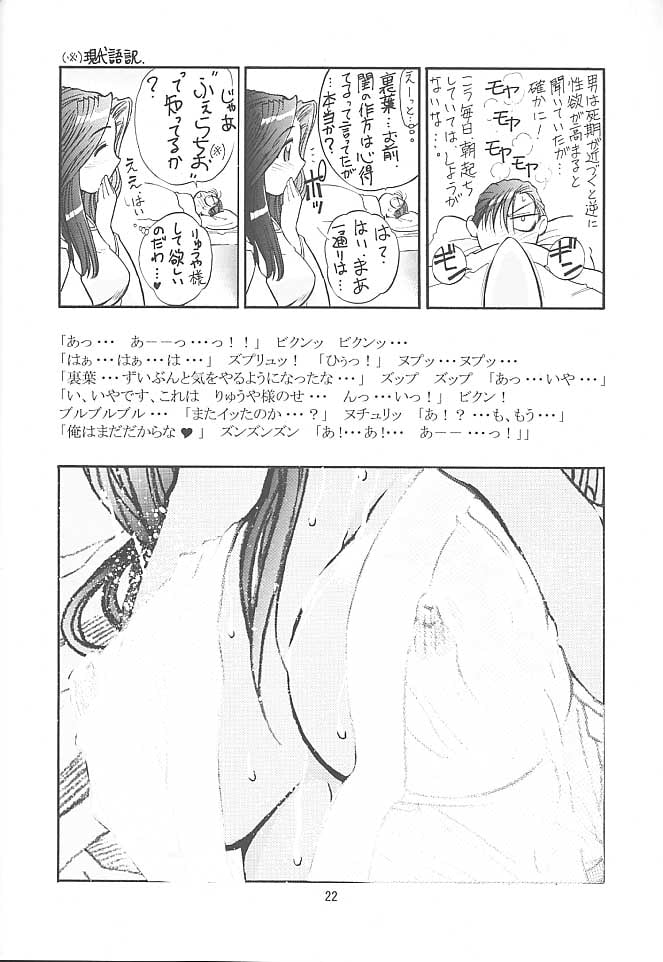 (※)現代語訳.
男は死期が近づくと逆に
性欲が高まると
聞いていたが…
確かに!
こう毎日朝起ち
していては、しようが
ないな…
モヤ
モヤ
モヤ
モヤ
ギン
ギン
えーっと…
裏葉…お前
閨の作方は心得
てるって言ってたが
…本当か?
は?
はい、まあ
一通りは…
ポッ
じゃあ
"ふぇらちお"(※)
って知ってるか
?
ええ
はい
りゅうや様
して欲しい
のだわ…♥
「あっ・・・　あーーっ・・・っ!!」　ビクンッ　ビクンッ・・・
「はぁ・・・はぁ・・・は・・・」　ズプリュッ!　「ひぅっ!」　ヌプッ・・・ヌプッ・・・
「裏葉・・・ずいぶんと気をやるようになったな・・・」　ズップ　ズップ　「あっ・・・いや・・・」
「い、いやです、これは　りゅうや様のせ・・・　んっ・・・いっ!」　ビクン!
ブルブルブル・・・　「またイッたのか・・・?」　ヌチュリッ　「あ!?・・・も、もう・・・」
「俺はまだだからな♥」　ズンズンズン　「あ!・・・あ!・・・　あーー・・・っ!」」
22